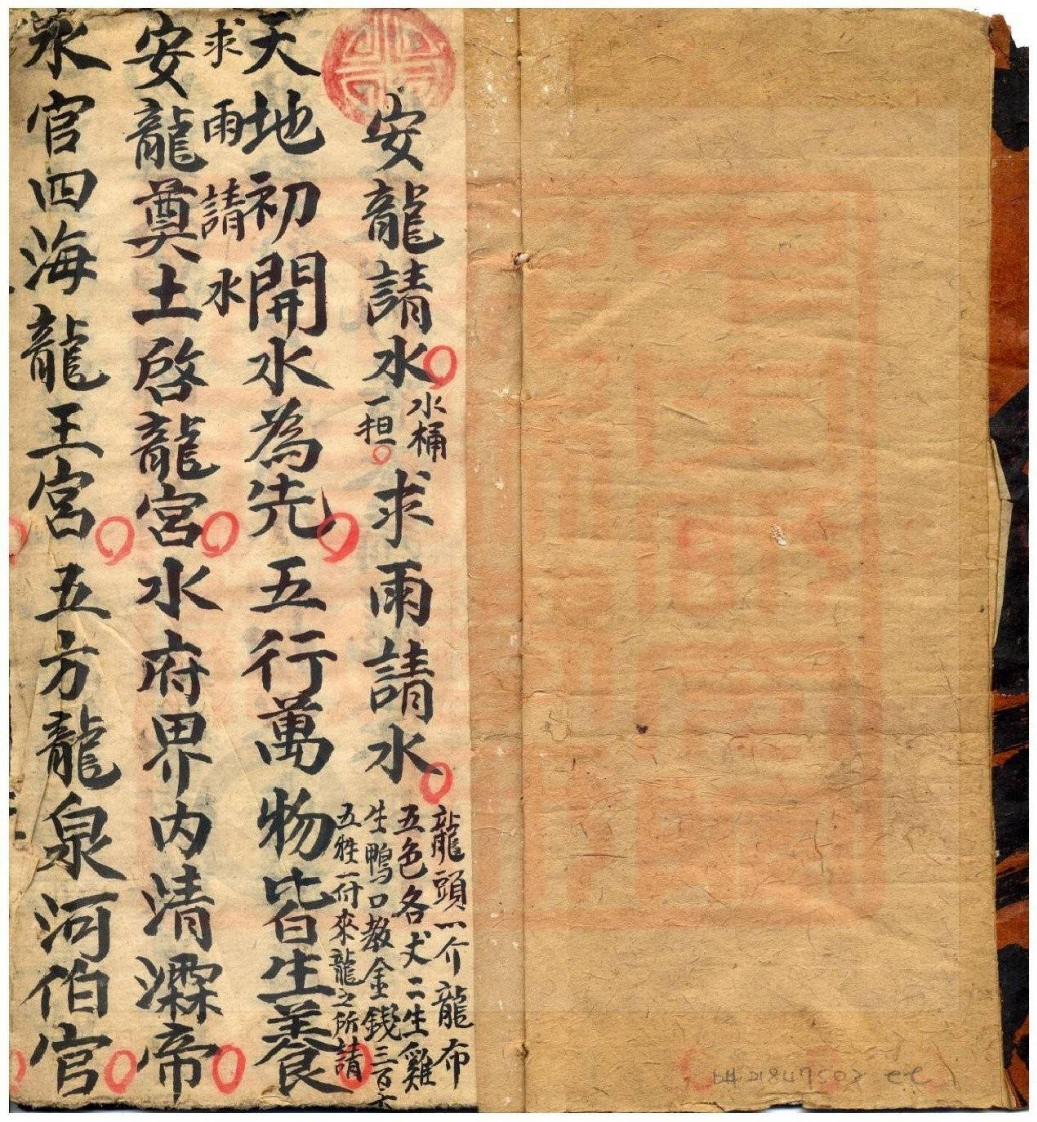 安龍請水
水桶
一担
求雨請水
龍頭一介龍布
五色各丈二生雞
生鴨口教金錢三百
五牲一付來龍之所請
天地初開水為先 五行萬物皆生養
求雨請水
安龍奠土啓龍宮 水府界內清帝
水官四海龍王宮 五方龍泉河伯官